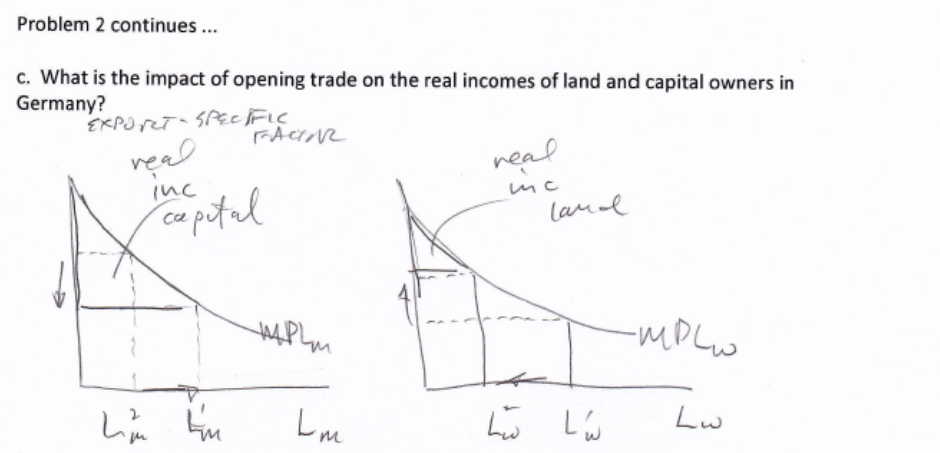 Problem 2 continues ...
c. What is the impact of opening trade on the real incomes of land and capital owners in
Germany?
EXPORT - SPECIFIC
FACTOR
real
inc
capital
MPLm
L²m L'm Lm
real
inc
land
MPLw
L²w L'w Lw